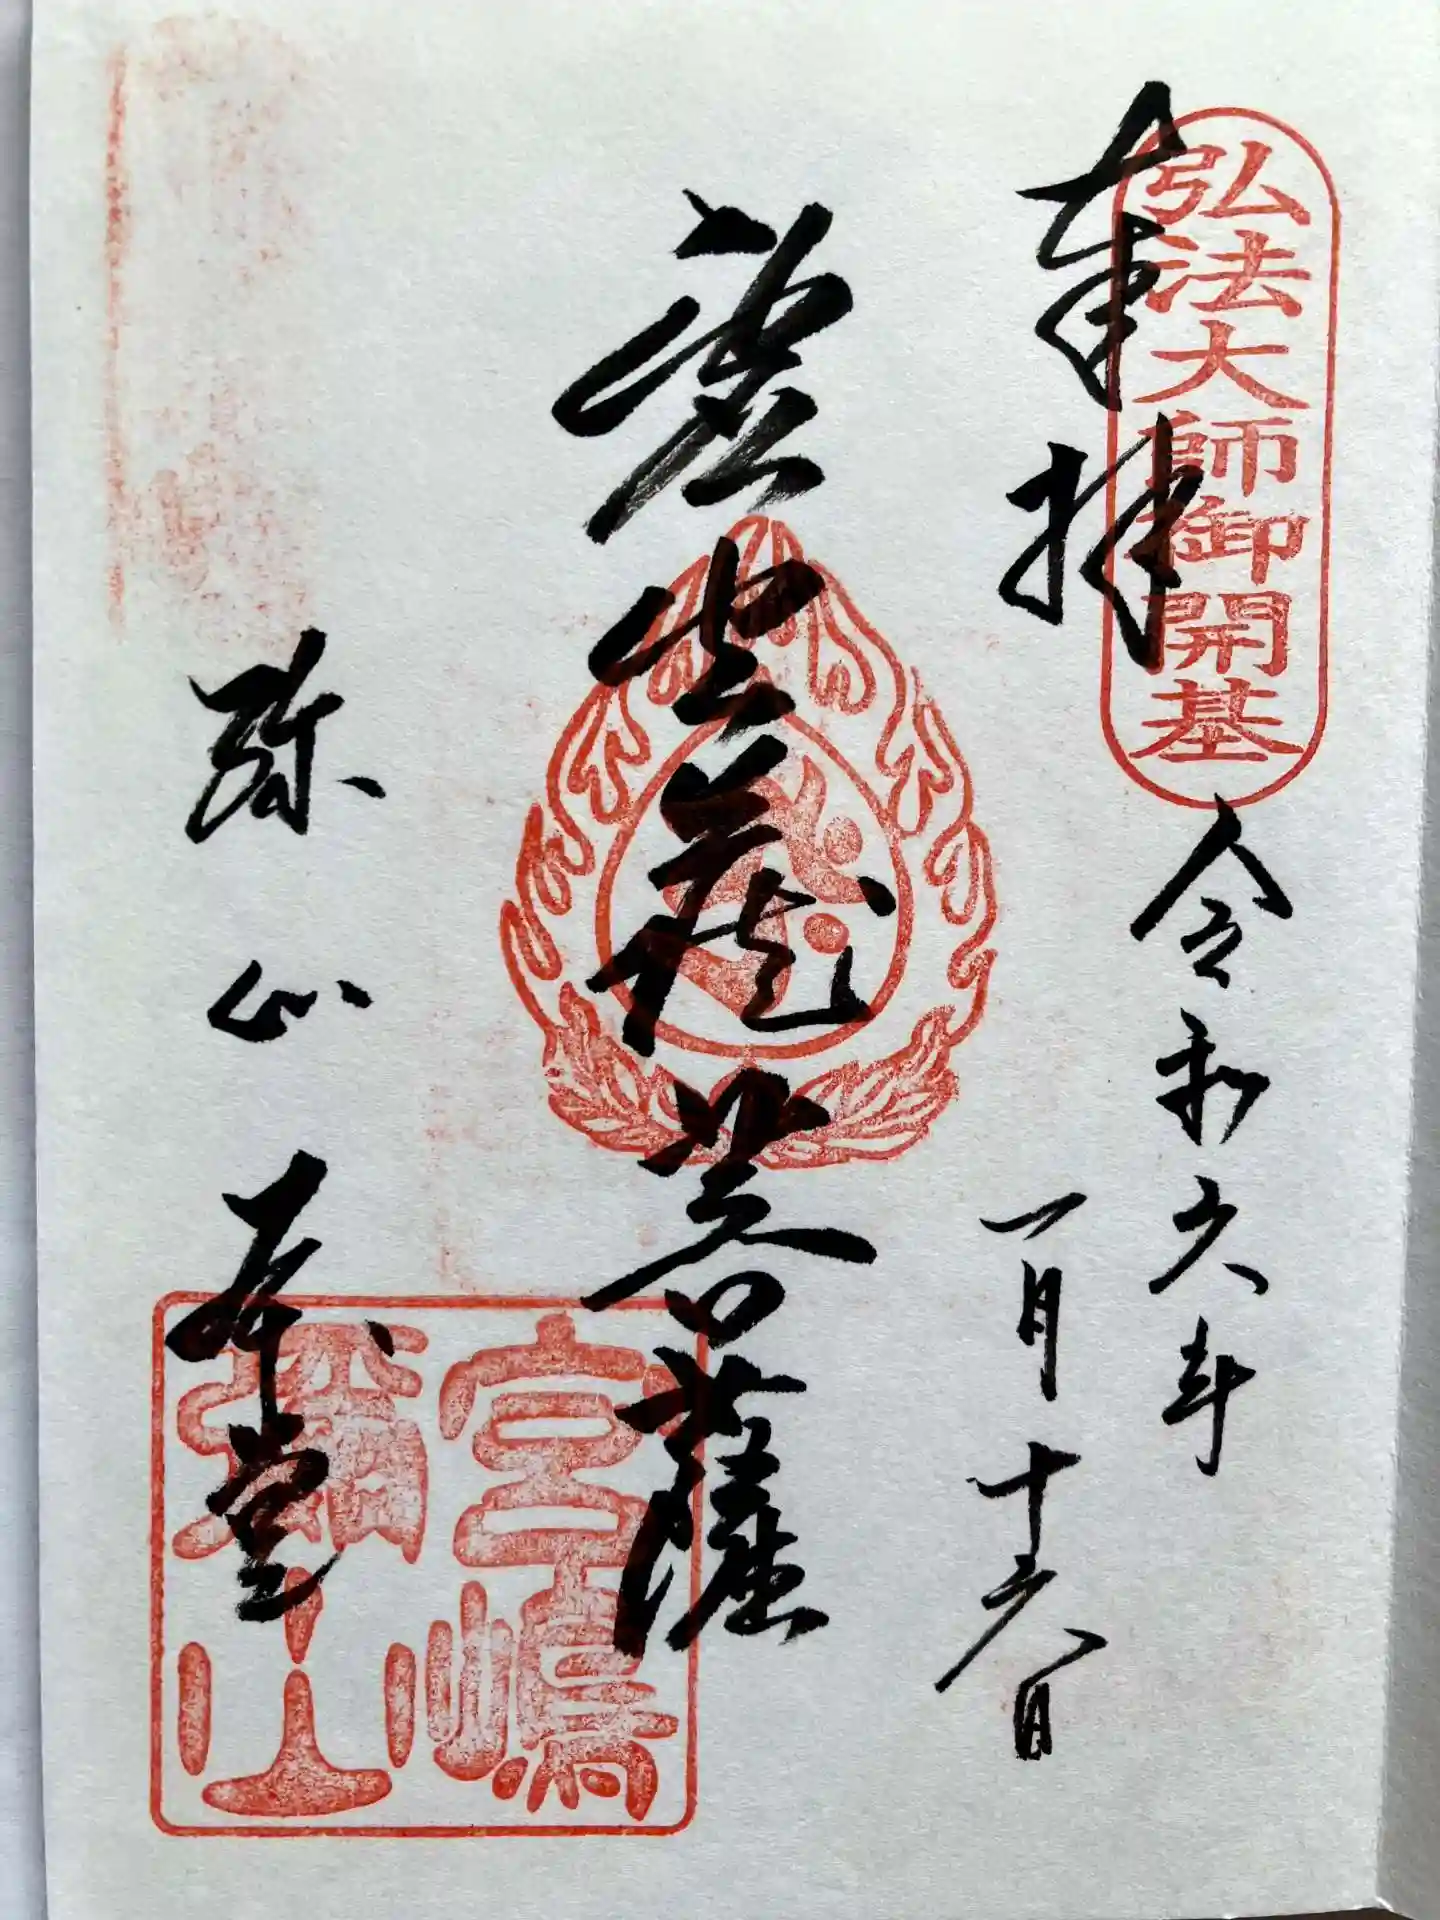 弘法大師御開基
奉拝
令和六年
一月十六日
虚空蔵菩薩
弥山本堂
宮嶋
彌山